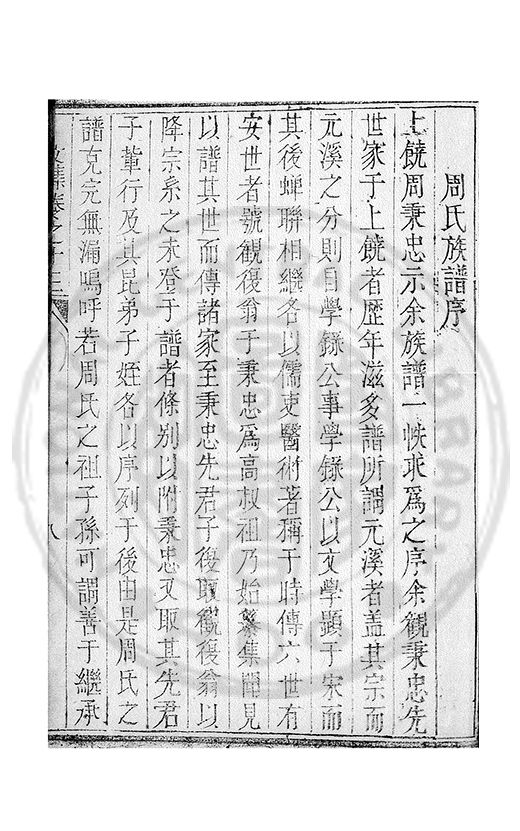 周氏族譜序
上饒周秉忠示余族譜一帙求為之序余觀秉忠先
世家于上饒者歷年滋多譜所謂元溪者盖其宗而
元溪之分則自學録公事學録公以文學顯于宋而
其後蟬聯相繼各以儒吏醫術著稱于時傳六世有
安世者號觀復翁于秉忠為高叔祖乃始纂集聞見
以譜其世而傳諸家至秉忠先君子復取觀復翁以
降宗系之未登于譜者條別以附秉忠又取其先君
子輩行及其昆弟子姪各以序列于後由是周氏之
譜克完無漏嗚呼若周氏之祖子孫可謂善于繼承
文集卷之十三
八